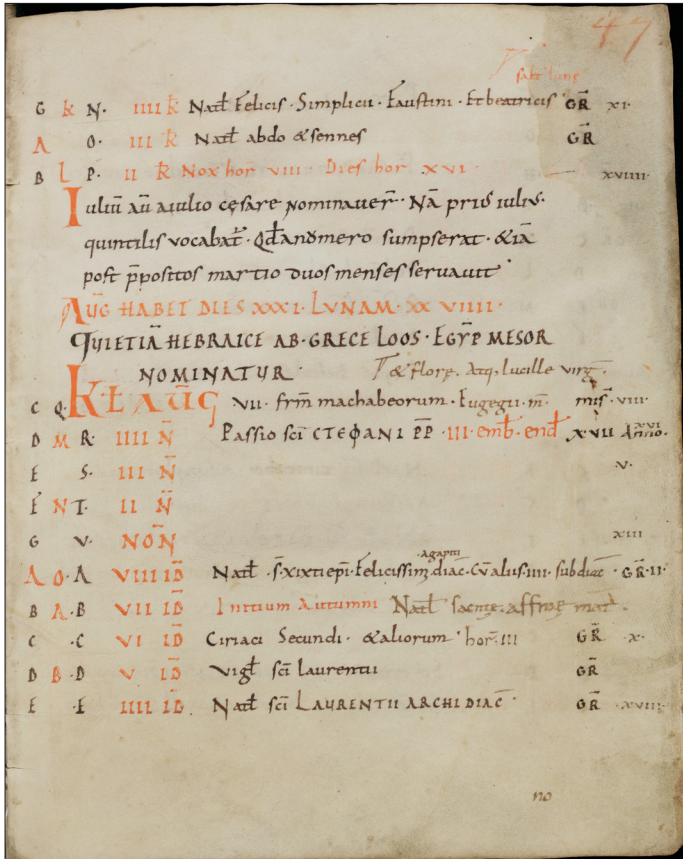 47
salt lune
G K N. IIII K Natł Felicis · Simplicii · Faustini · Et beatricis GR XI ·
A O. III K Natł abdo & sennes GR
B L P. II K Nox hor VIII · Dies hor XVI · XVIIII ·
Iuliū aū aiulio cęsare nominaver̄ · Nā priꝰ iuliꝰ ·
quintilis vocabat̄ · Qđ anōmero sumpserat · & iā
post p̄positos martio duos menses servavit
AUG HABET DIES XXXI · LVNAM · XX VIIII ·
QUIETIĀ HEBRAICE AB · GRECE LOOS · EGYP̄ MESOR
NOMINATUR · & florę · Atq, lucille virḡ ·
C Q. KŁ AŪG VII · frm̄ machabeorum · Eugegii · m̄ · VIII ·
D M R. IIII N̄ Passio sc̄i CTEΦANI P̄P̄ · III · emb̄ · end̄ XVII Anno · XVI
E S. III N̄ V ·
F N T. II N̄
G V. NOÑ XIII
agapiti
A O · A VIII ID Natł · s̄ · xixti ep̄i · Felicissim diac̄ · IIII · subdiac̄ · GR · II ·
B A · B VII ID Initium Autumni Natł sacrę · affrae mar̄t ·
C · C VI ID Ciriaci Secundi · & aliorum hor̄ · III GR · X ·
D B · D V ID Vigł sc̄i laurentii GR
E · E IIII ID Natł sc̄i LAURENTII ARCHIDIAC̄ GR · XVIII ·
no